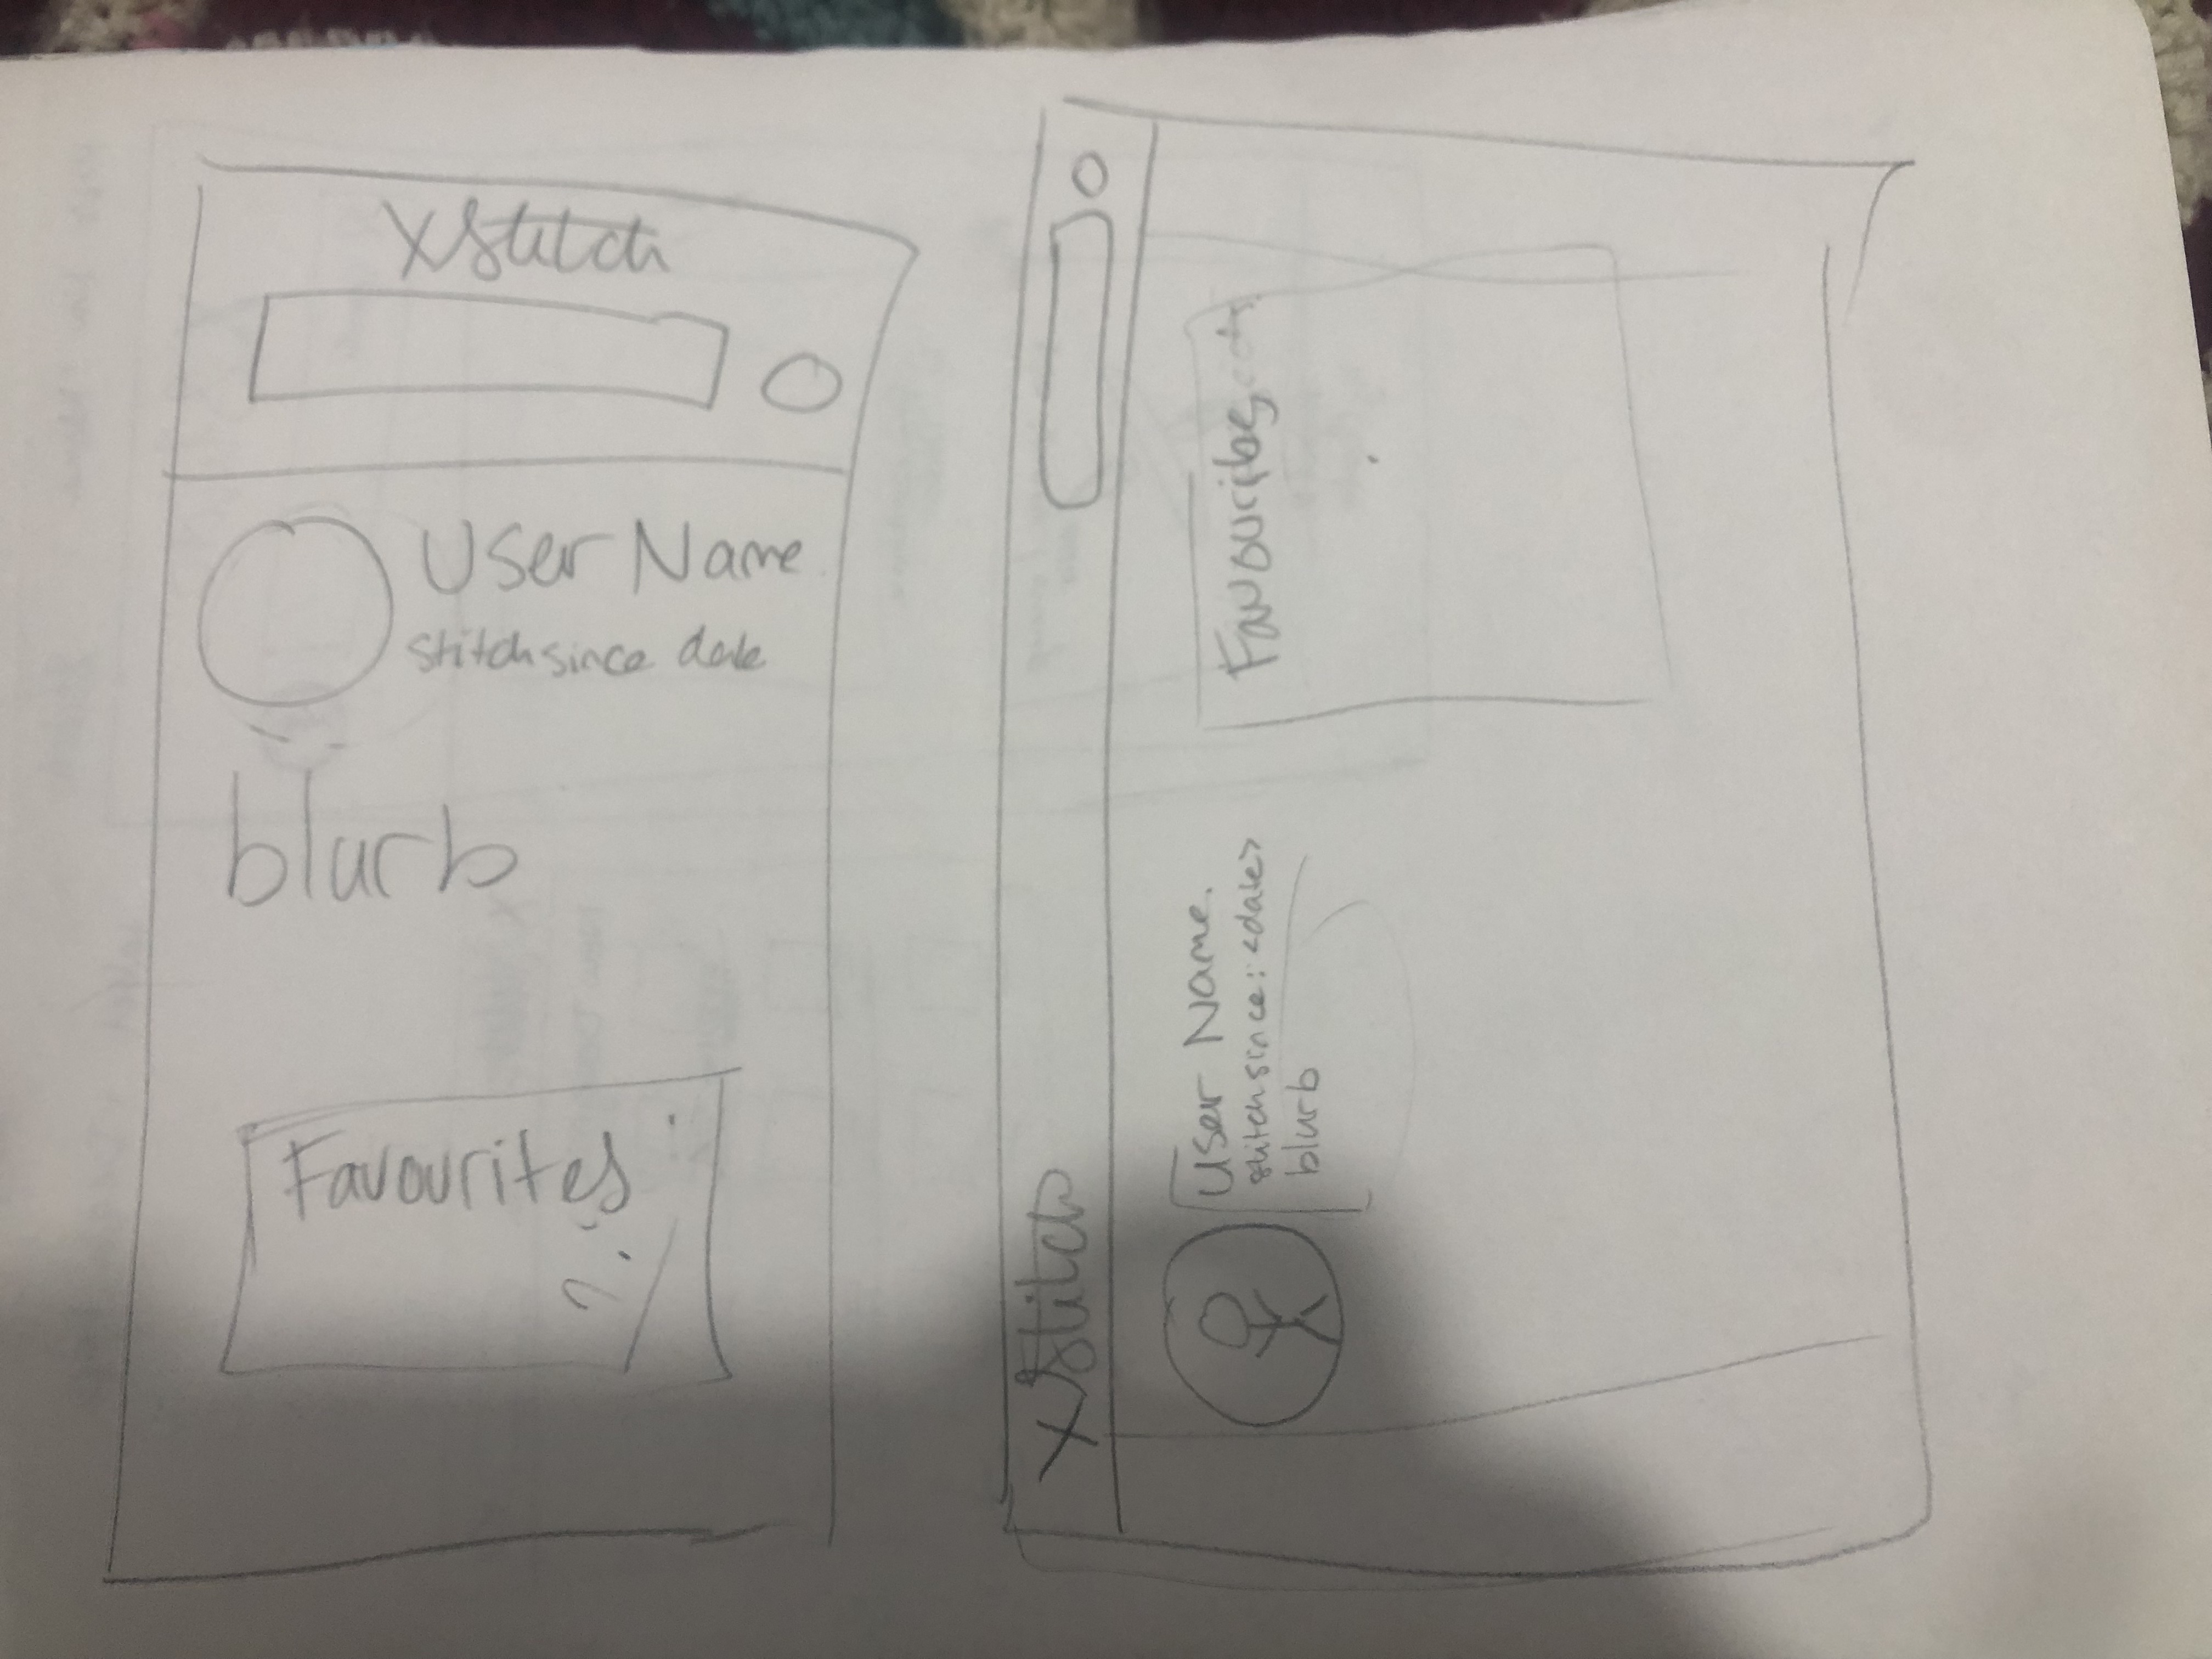 XStitch
User Name
stitch since date
blurb
Favourites
?
XStitch
User Name.
stitch since: <date>
blurb
Favourites